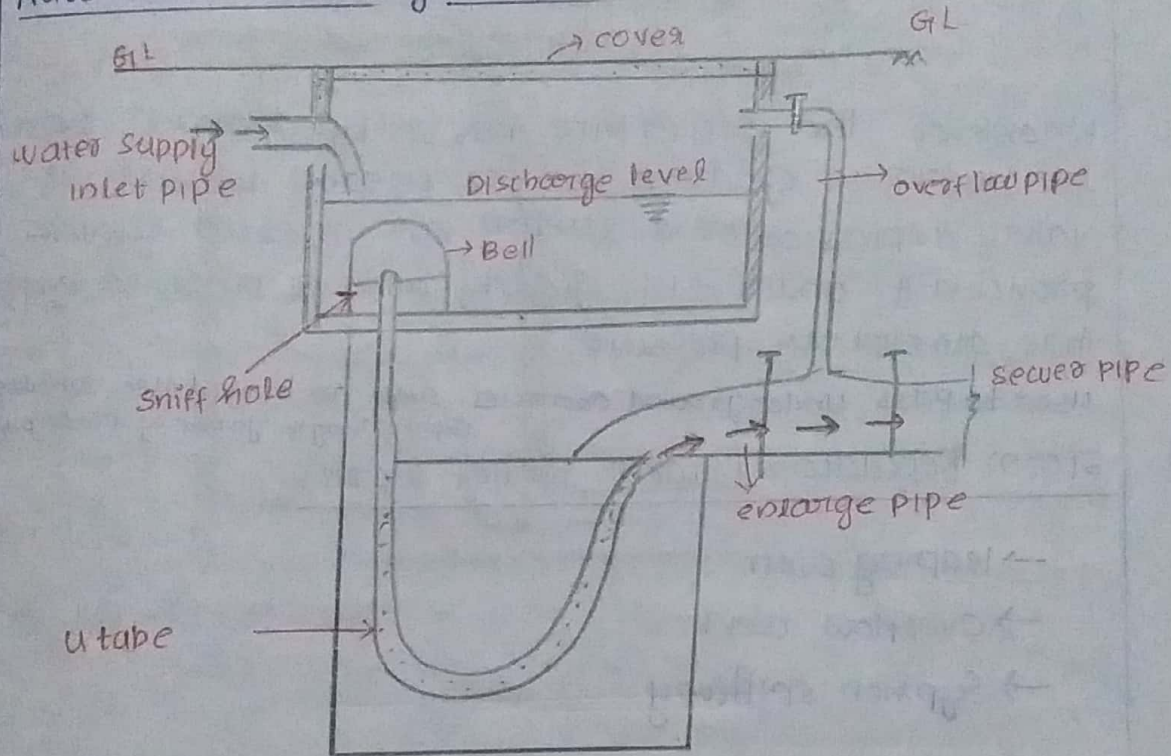 GL
GL
cover
water supply
inlet pipe
Discharge level
overflow pipe
Bell
Sniff hole
sewer pipe
enlarge pipe
u tabe